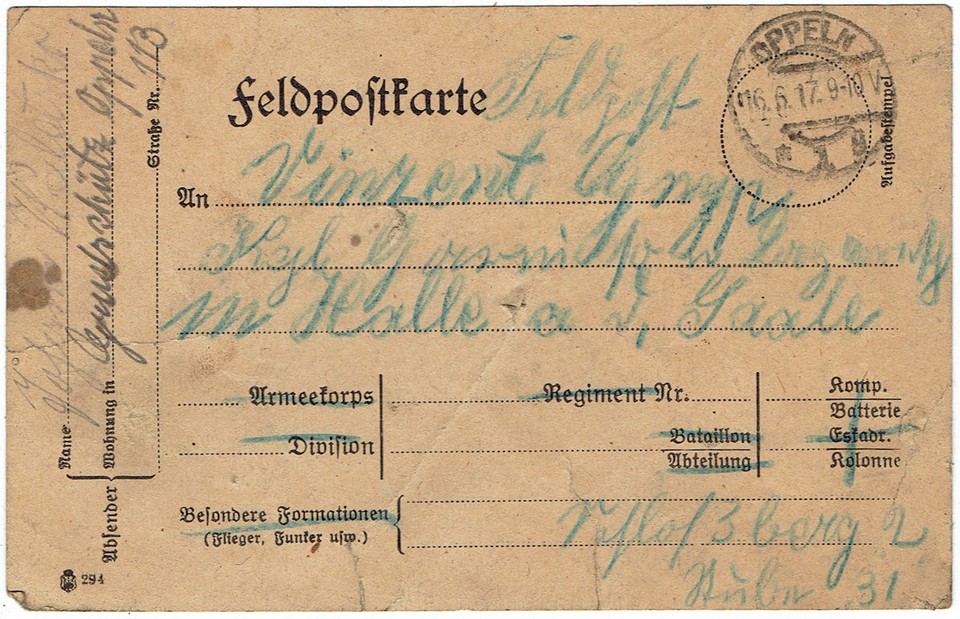 Feldpostkarte Feldpost
OPPELN
16.6.17.9-10 V
* 1 *
Aufgabestempel
An Vinzent
Kgl Garnison Lazarett
in Halle a d, Saale
Armeekorps
Division
Regiment Nr.
Bataillon
Abteilung
Komp.
Batterie
Eskadr.
Kolonne
Besondere Formationen
(Flieger, Funker usw.)
Schloßberg 2
Stube 31
Absender
Name
Wohnung in Oppeln
Straße Nr. 113
294